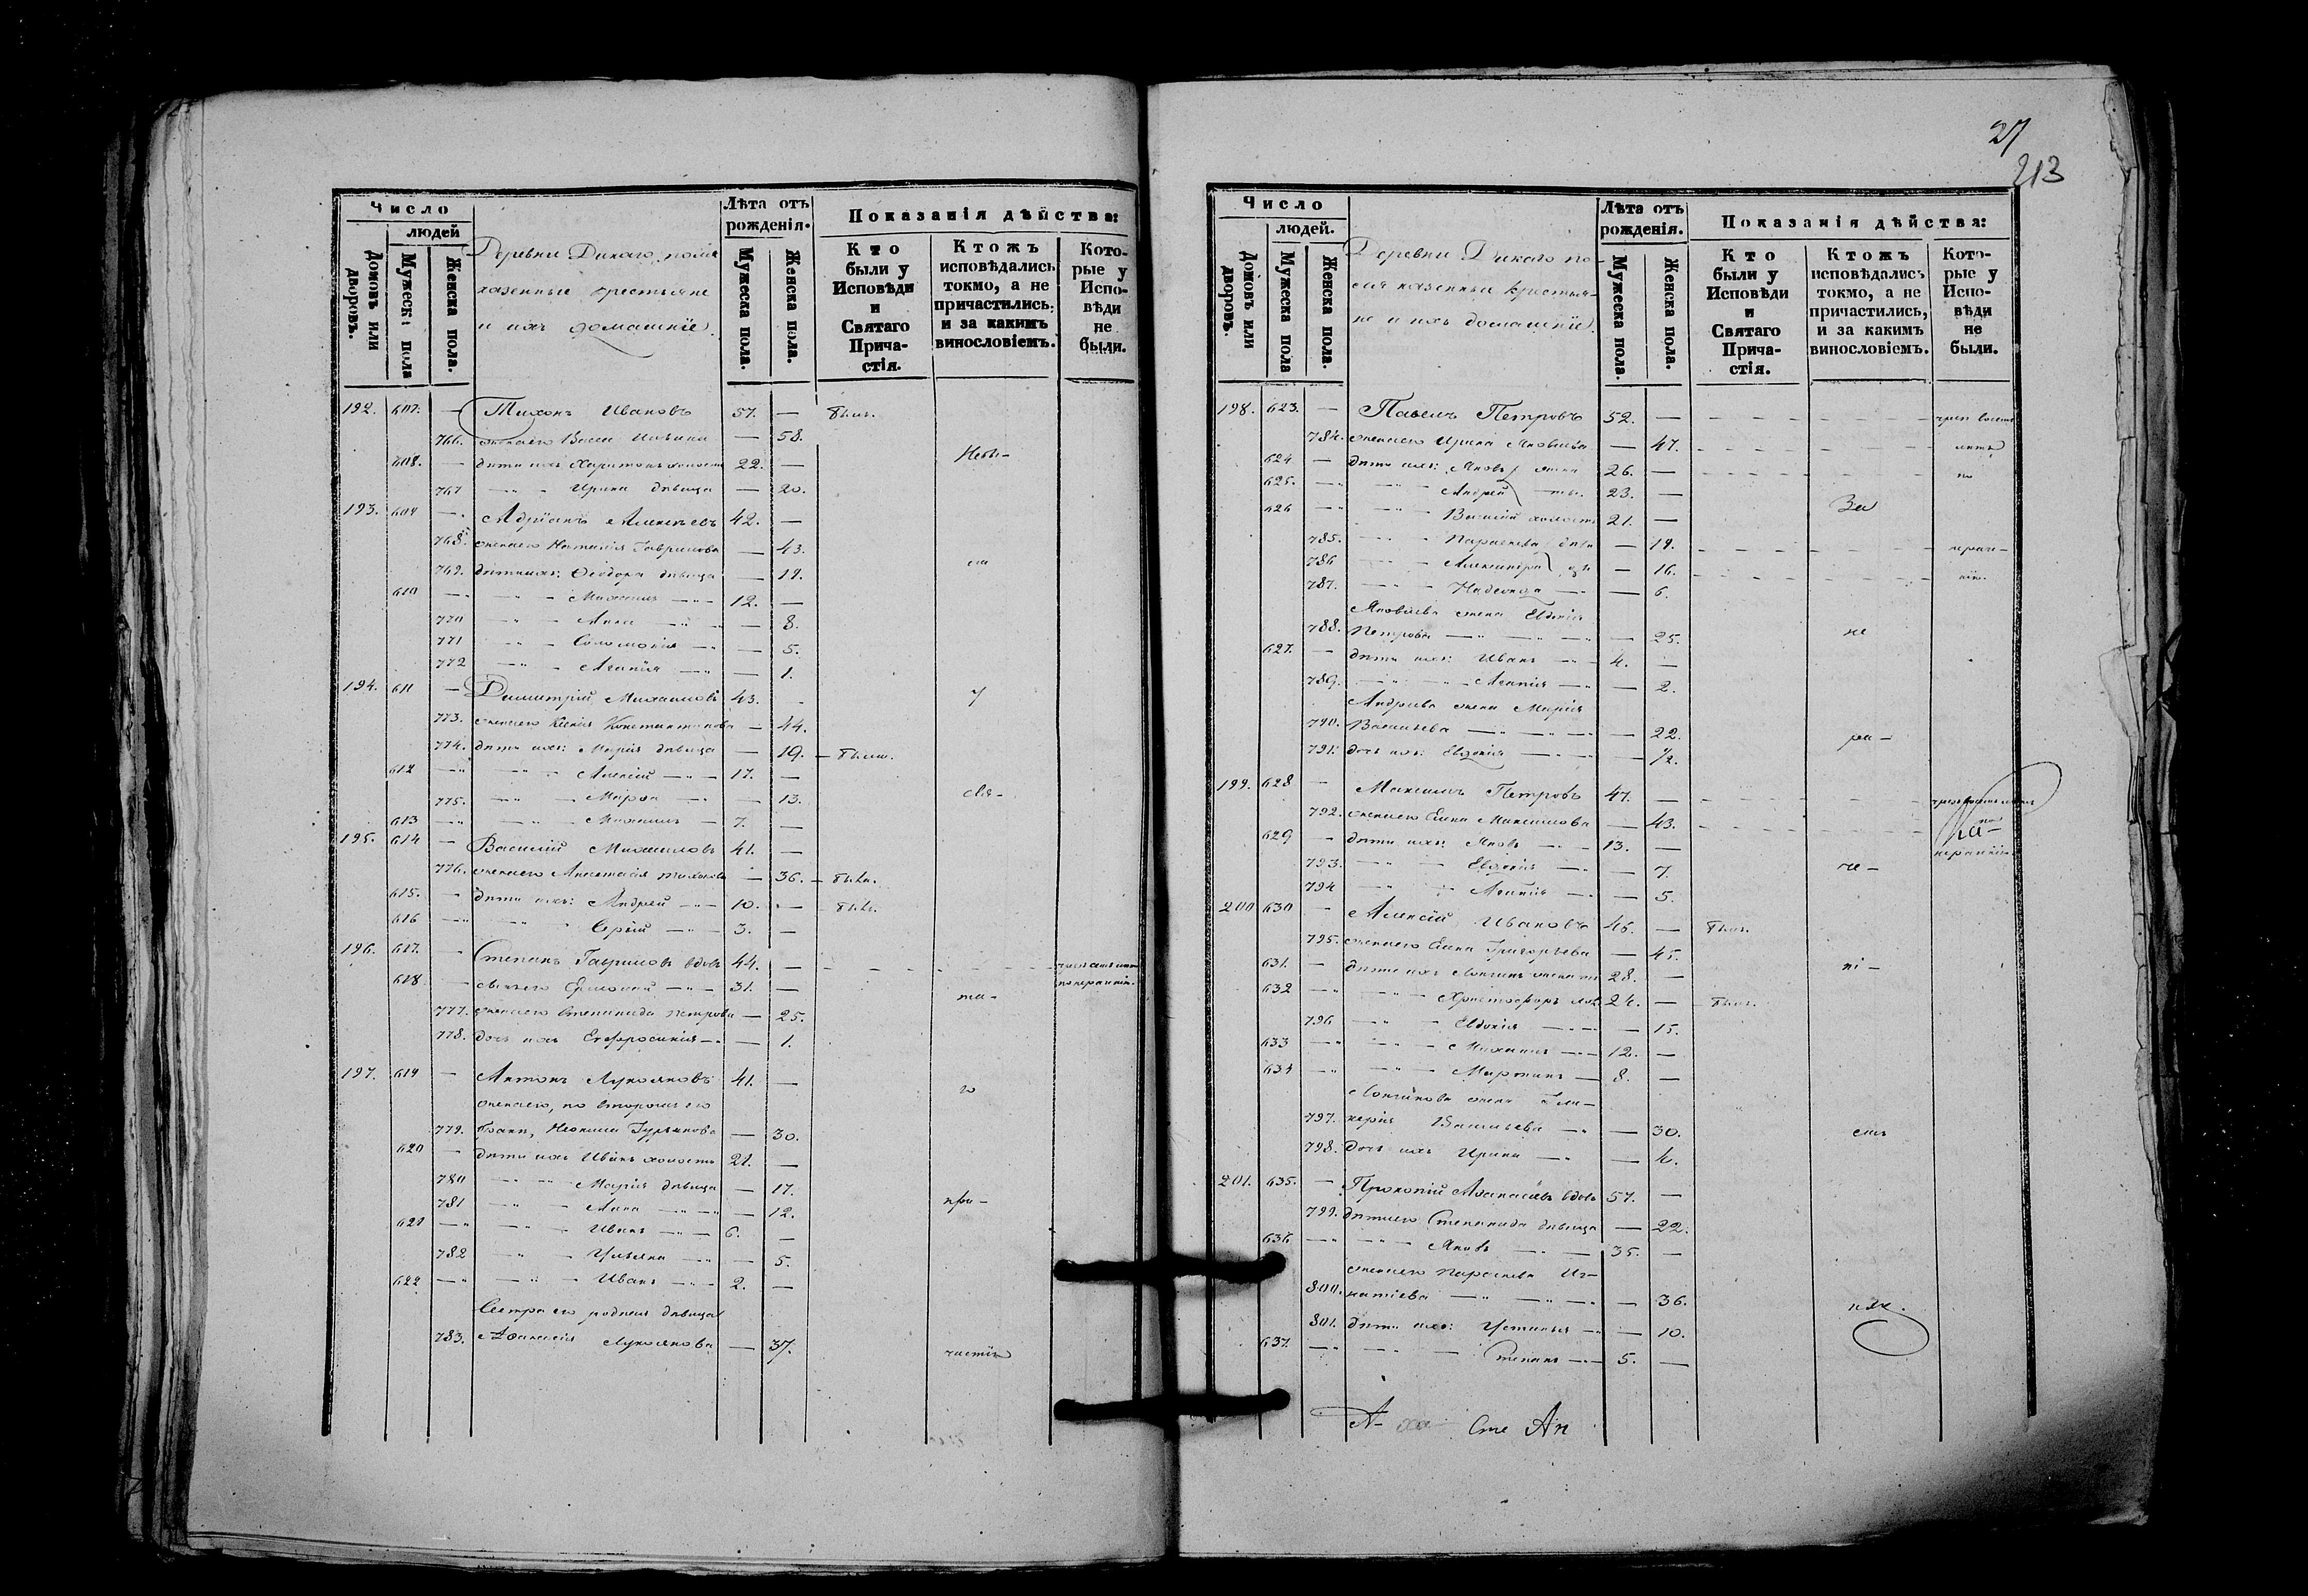 27
213
Число
людей
Домовъ или дворовъ.
Мужеска пола
Женска пола.
Деревни Дикаго поля
казенные крестьяне
и ихъ домашніе.
Лѣта отъ рожденія.
Мужеска пола.
Женска пола.
Показанія дѣйства:
Кто были у Исповѣди и Святаго Прича-стія.
Ктожъ исповѣдались токмо, а не причастились; и за какимъ винословіемъ.
Кото-рые у Испо-вѣди не были.
192. 607. — Тихонъ Ивановъ 57. — былъ.
766. жена его Васса Ильина — 58.
608. — дѣти ихъ Харитонъ холостъ 22. —
Небы-
767 Ирина дѣвица — 20.
193. 609 — Адріанъ Алексѣевъ 42. —
768. жена его Наталія Гаврилова — 43.
769. дѣти ихъ: Ѳеодора дѣвица — 19.
ли
610 Михаилъ 12. —
770 Анна — 8.
771 Соломонія — 5.
772 Агапія — 1.
194. 611 — Димитрій Михаиловъ 43.
у
773. жена его Ксенія Константинова — 44.
774. дѣти ихъ: Марія дѣвица — 19. — была.
612 Алексій 17. —
775. Марѳа — 13.
свя-
613 Михаилъ 7. —
195. 614 — Василій Михаиловъ 41. —
776. жена его Анастасія Тихонова — 36. — была.
615. — дѣти ихъ: Андрей 10. — былъ.
616 Сергій 3. —
196. 617. — Стефанъ Гавриловъ вдовъ 44. —
618 Филимонъ 31. —
по нерадѣнію.
та-
777. жена его Степанида Петрова — 25.
778. дочь ихъ Евфросинія — 1.
197. 619 — Антонъ Лукояновъ 41. —
го
жена его, по второмъ его
779. бракѣ, Неонила Гурьянова — 30.
620 — дѣти ихъ Иванъ холостъ 21. —
780 Марія дѣвица — 17.
при-
781 Анна — 12.
621 Иванъ 6. —
782 Ульяна — 5.
622 Иванъ 2. —
Сестра его родная дѣвица
783. Аѳанасія Лукоянова — 37.
частія
Число
людей.
Домовъ или дворовъ.
Мужеска пола
Женска пола.
Деревни Дикаго по-
ля казенные крестья-
не и ихъ домашніе.
Лѣта отъ рожденія.
Мужеска пола.
Женска пола.
Показанія дѣйства:
Кто были у Исповѣди и Святаго Прича-стія.
Ктожъ исповѣдались токмо, а не причастились, и за какимъ винословіемъ.
Кото-рые у Испо-вѣди не были.
198. 623. — Павелъ Петровъ 52. —
784. жена его Ирина Яковлева — 47. лѣтъ
624 — дѣти ихъ: Яковъ жена- 26. — по
625. Андрей ты. 23. —
За
626 Василій холостъ 21. —
785. Параскева дѣви — 19. нерадѣ-
786 Александра цы — 16. нію.
787. Надежда — 6.
Яковлева жена Евдокія
788. Петрова — 25.
не
627. — дѣти ихъ: Иванъ 4. —
789. Агапія — 2.
Андреева жена Марія
790. Васильева — 22.
ра-
791. дочь ихъ: Евдокія — 1/2.
199. 628 — Максимъ Петровъ 47. —
792. жена его Елена Максимова — 43.
по
629 — дѣти ихъ: Яковъ 13. — нерадѣнію.
793. Евдокія — 7.
че-
794 Агапія — 5.
200 630 — Алексій Ивановъ 46. — былъ.
795. жена его Елена Григорьева — 45.
ні-
631. — дѣти ихъ Логгинъ женатъ 28. —
632 Христофоръ хол. 24. — былъ.
796 Евдокія — 15.
633 Михаилъ 12. —
634 Мартинъ 8. —
Логгинова жена Гли-
797. керія Васильева — 30.
емъ
798. дочь ихъ Ирина — 4.
201. 635. — Прокопій Аѳанасьевъ вдовъ 57. —
799. дѣти его Степанида дѣвица — 22.
636. Яковъ 35. —
жена его Параскева Иг-
800. натіева — 36.
801. дѣти ихъ: Устинья — 10.
637. Стефанъ 5. —
Сте Ап